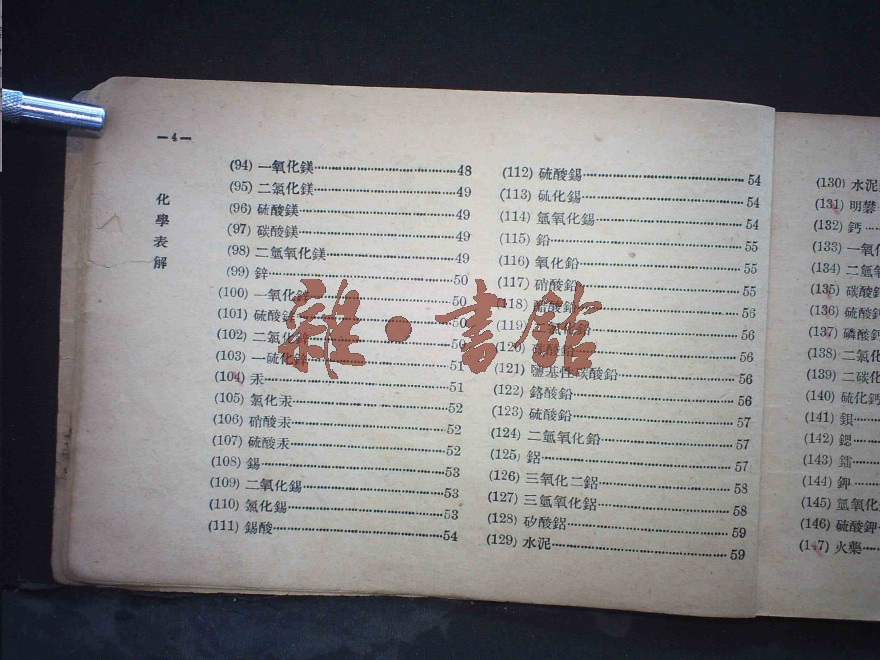 —4—
化學表解
(94) 一氧化鎂 48
(95) 二氯化鎂 49
(96) 硫酸鎂 49
(97) 碳酸鎂 49
(98) 二氫氧化鎂 49
(99) 鋅 50
(100) 一氧化鋅 50
(101) 硫酸鋅 50
(102) 二氯化鋅 50
(103) 一硫化鋅 51
(104) 汞 51
(105) 氯化汞 52
(106) 硝酸汞 52
(107) 硫酸汞 52
(108) 錫 53
(109) 二氧化錫 53
(110) 氯化錫 53
(111) 錫酸 54
(112) 硫酸錫 54
(113) 硫化錫 54
(114) 氫氧化錫 54
(115) 鉛 55
(116) 氧化鉛 55
(117) 硝酸鉛 55
(118) 醋酸鉛 56
(119) 二氯化鉛 56
(120) 酸鉛 56
(121) 鹽基性碳酸鉛 56
(122) 鉻酸鉛 56
(123) 硫酸鉛 57
(124) 二氫氧化鉛 57
(125) 鋁 57
(126) 三氧化二鋁 58
(127) 三氫氧化鋁 58
(128) 矽酸鋁 59
(129) 水泥 59
(130) 水泥
(131) 明礬
(132) 鈣
(133) 一氧
(134) 二氫
(135) 碳酸鈣
(136) 硫酸鈣
(137) 磷酸鈣
(138) 二氯化
(139) 二碳化
(140) 硫化鈣
(141) 鋇
(142) 鍶
(143) 鐳
(144) 鉀
(145) 氫氧化
(146) 硫酸鉀
(147) 火藥
雜·書館